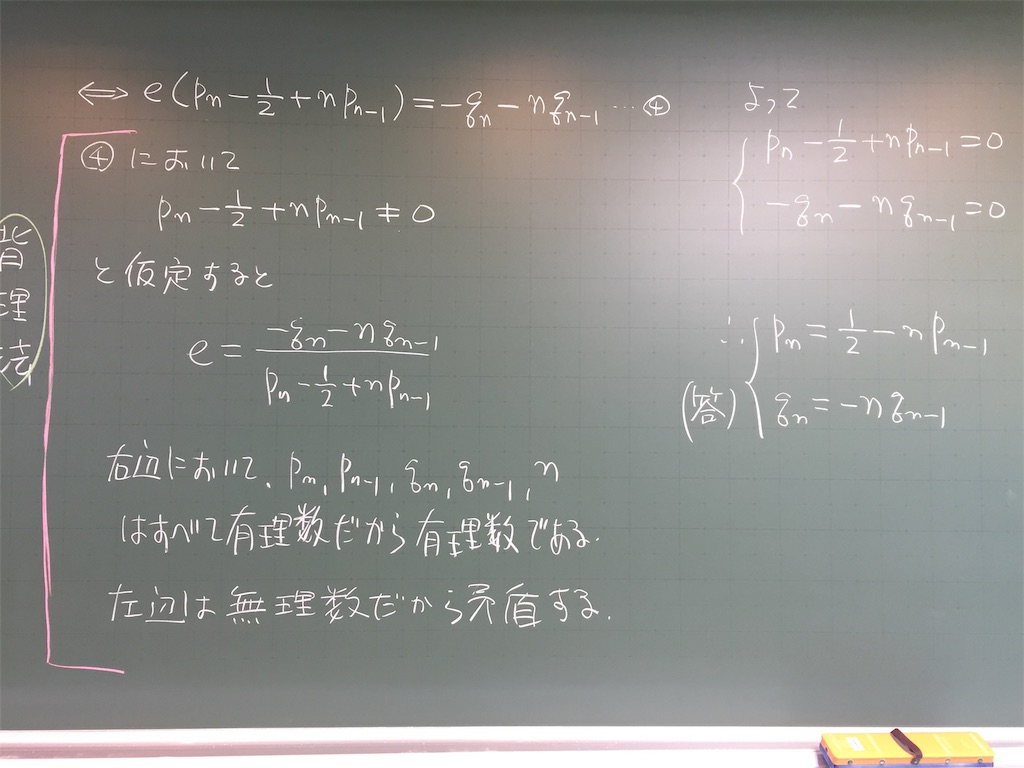 ⇔ e(pₙ - 1/2 + n pₙ₋₁) = -qₙ - n qₙ₋₁ … ④
背理法
④ において
pₙ - 1/2 + n pₙ₋₁ ≠ 0
と仮定すると
e = (-qₙ - n qₙ₋₁)/(pₙ - 1/2 + n pₙ₋₁)
右辺において、pₙ, pₙ₋₁, qₙ, qₙ₋₁, n
はすべて有理数だから有理数である.
左辺は無理数だから矛盾する.
よって
{ pₙ - 1/2 + n pₙ₋₁ = 0
-qₙ - n qₙ₋₁ = 0
∴ { pₙ = 1/2 - n pₙ₋₁
(答) qₙ = -n qₙ₋₁